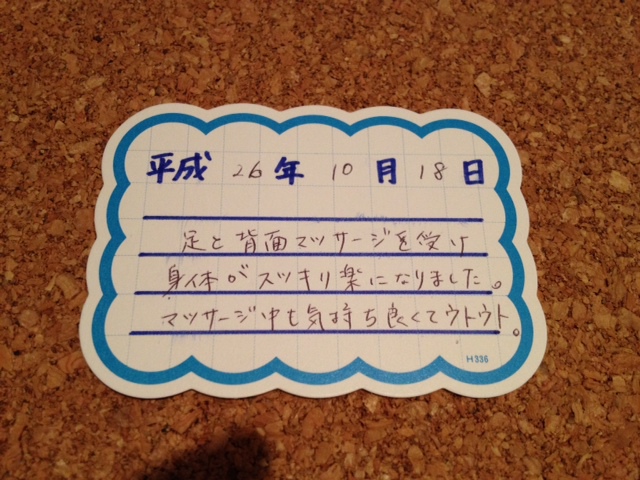 平成 26 年 10 月 18 日
足と背面マッサージを受け
身体がスッキリ楽になりました。
マッサージ中も気持ち良くてウトウト。
H336